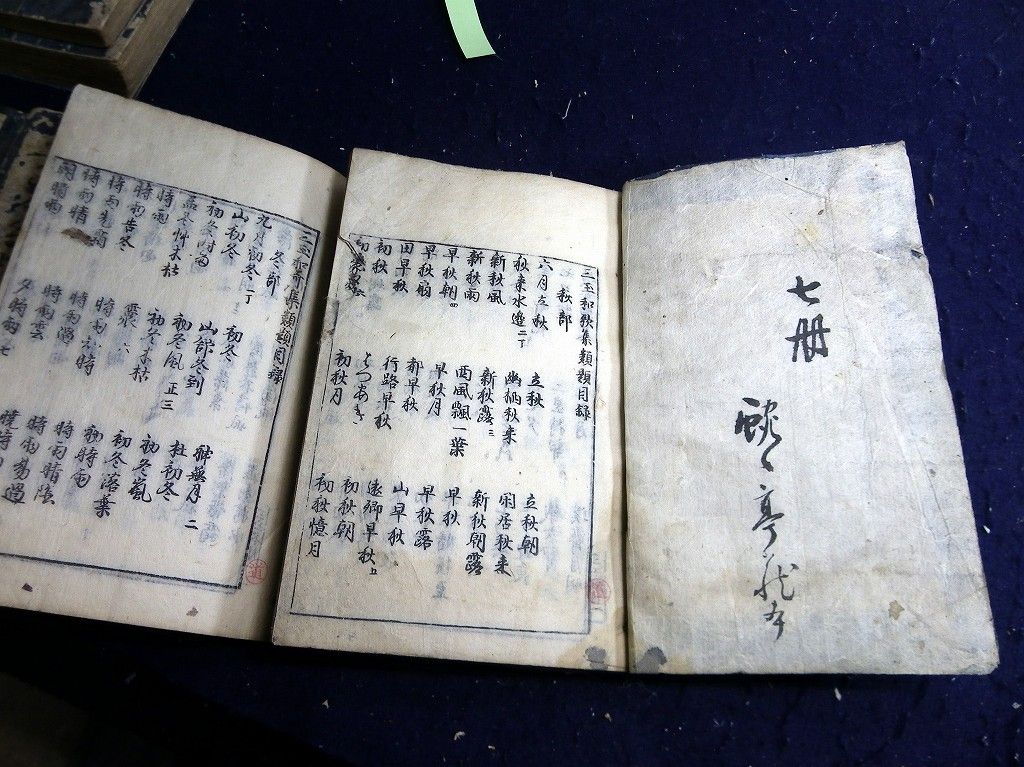 七册
亭蔵本
三玉和歌集類題目録
秋部
六月立秋
立秋
立秋朝
秋来水邉二丁
幽栖秋来
閑居秋来
新秋風
新秋露三
新秋朝露
新秋雨
西風飄一葉
早秋
早秋朝四
早秋月
早秋露
早秋扇
都早秋
山早秋
田早秋
行路早秋
遠郷早秋五
初秋
はつあき
初秋朝
初秋月
初秋憶月
三玉和歌集類題目録
冬部
九月初冬一丁
初冬
神無月二
山初冬
山館冬到
杜初冬
初冬時雨
初冬風正三
初冬嵐
孟冬艸木枯
初冬木枯
初冬落葉
時雨
霙六
初時雨
時雨告冬
時雨知時
時雨晴陰
時雨先霜
時雨過
時雨易過
時雨晴
時雨雲
暁時雨
朝時雨
夕時雨七